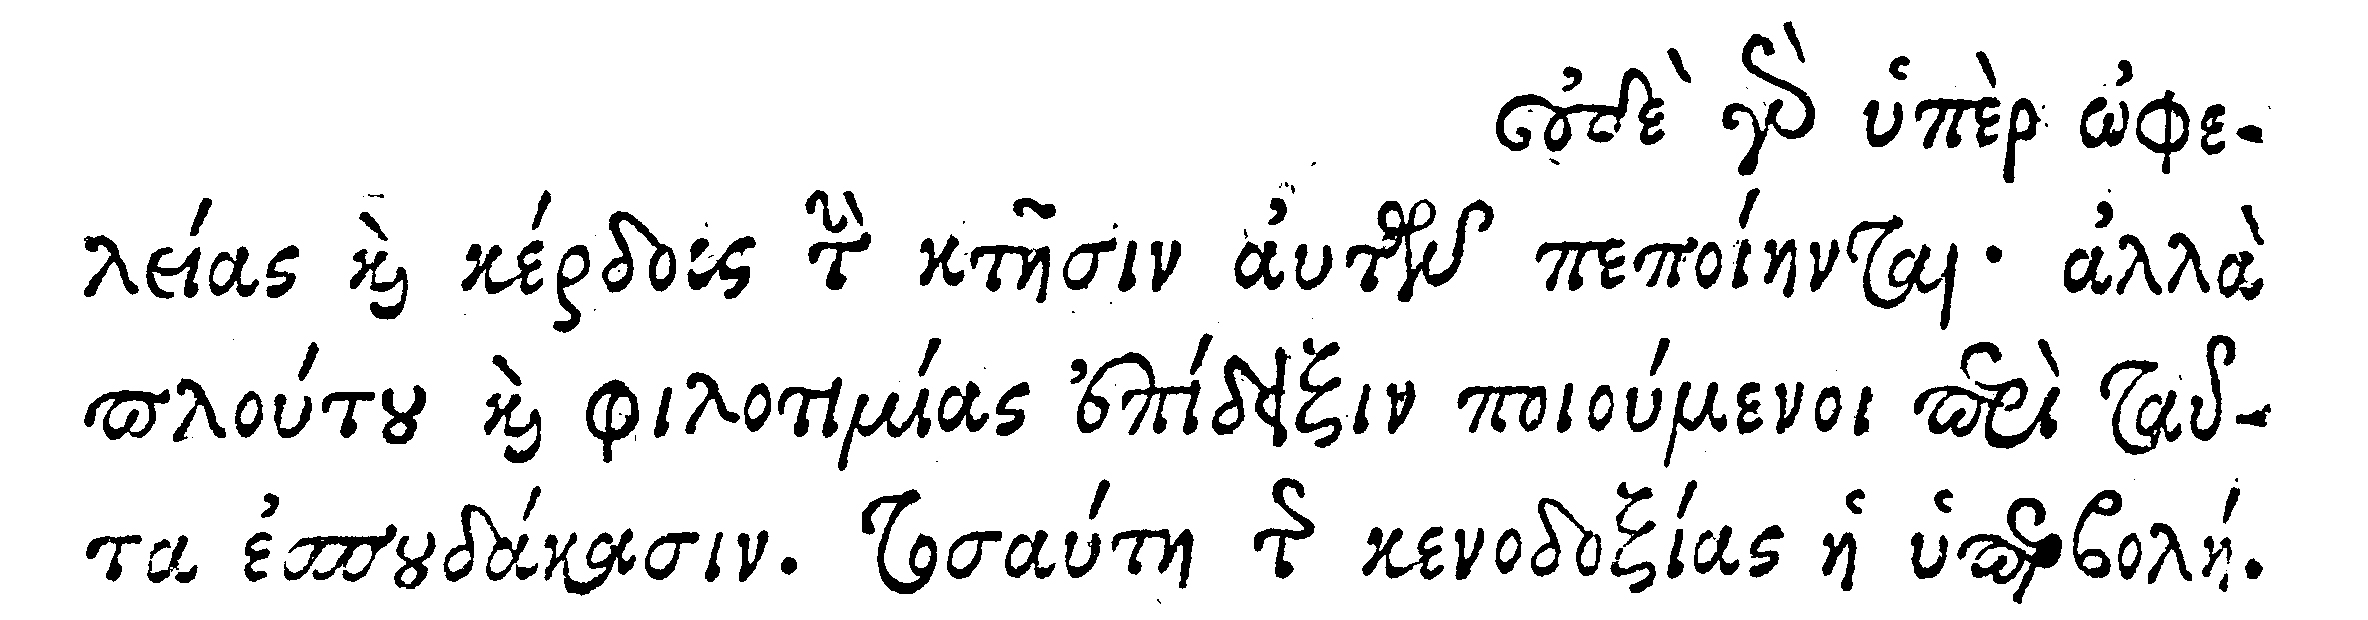 οὐδὲ γὰρ ὑπὲρ ὠφε-
λείας καὶ κέρδους τὴν κτῆσιν αὐτῶν πεποίηνται· ἀλλὰ
πλούτου καὶ φιλοτιμίας ἐπίδειξιν ποιούμενοι περὶ ταῦ-
τα ἐσπουδάκασιν. Τοσαύτη τῆς κενοδοξίας ἡ ὑπερβολή.